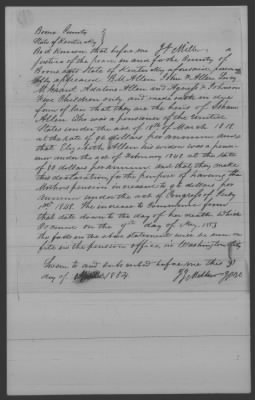 Boone County }
State of Kentucky }
Be it Known that before me J F Miller a
justice of the peace in and for the County of
Boone and State of Kentucky aforesaid personally
appeared Bill Allen John F Allen Lucy
Adaline Allen and Agness F Johnson
Five Children only and made oath in due
form of law that they are the heirs of Isham
Allen who was a pensioner of the United
States under the act of 18th of March 1818
at the rate of 96 dollars per annum and
that Elizabeth Allen his widow was a pensi-
oner under the act of February 1848 at the rate
of 80 dollars per annum and that they make
this declaration for the purpose of having the
Mothers pension increased to 96 dollars per
annum under the act of Congress of July
1848. The increase to Commence from
that date down to the day of her death which
occurred on the 9th day of May 1853
the facts in the above statement will be seen on
file in the pension office in Washington City
Sworn to and subscribed before me this
day of 1854
J F Miller J P B C